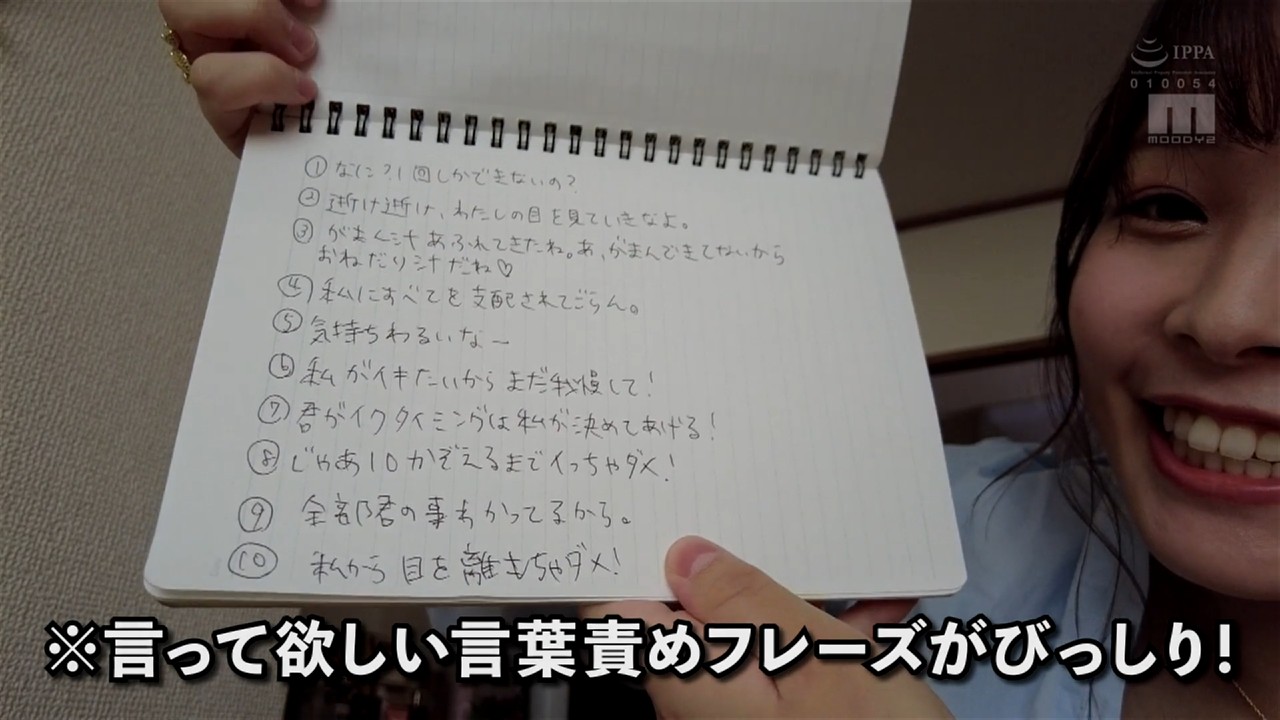 IPPA
010054
MOODYZ
① なに?1回しかできないの?
② 逝け逝け、わたしの目を見ていきなよ。
③ がまん汁あふれてきたね。あ、がまんできてないから
おねだり汁だね♡
④ 私にすべてを支配されてごらん。
⑤ 気持ちわるいなー
⑥ 私がイキたいからまだ我慢して!
⑦ 君がイクタイミングは私が決めてあげる!
⑧ じゃあ10かぞえるまでイっちゃダメ!
⑨ 全部君の事わかってるから。
⑩ 私から目を離しちゃダメ!
※言って欲しい言葉責めフレーズがびっしり!